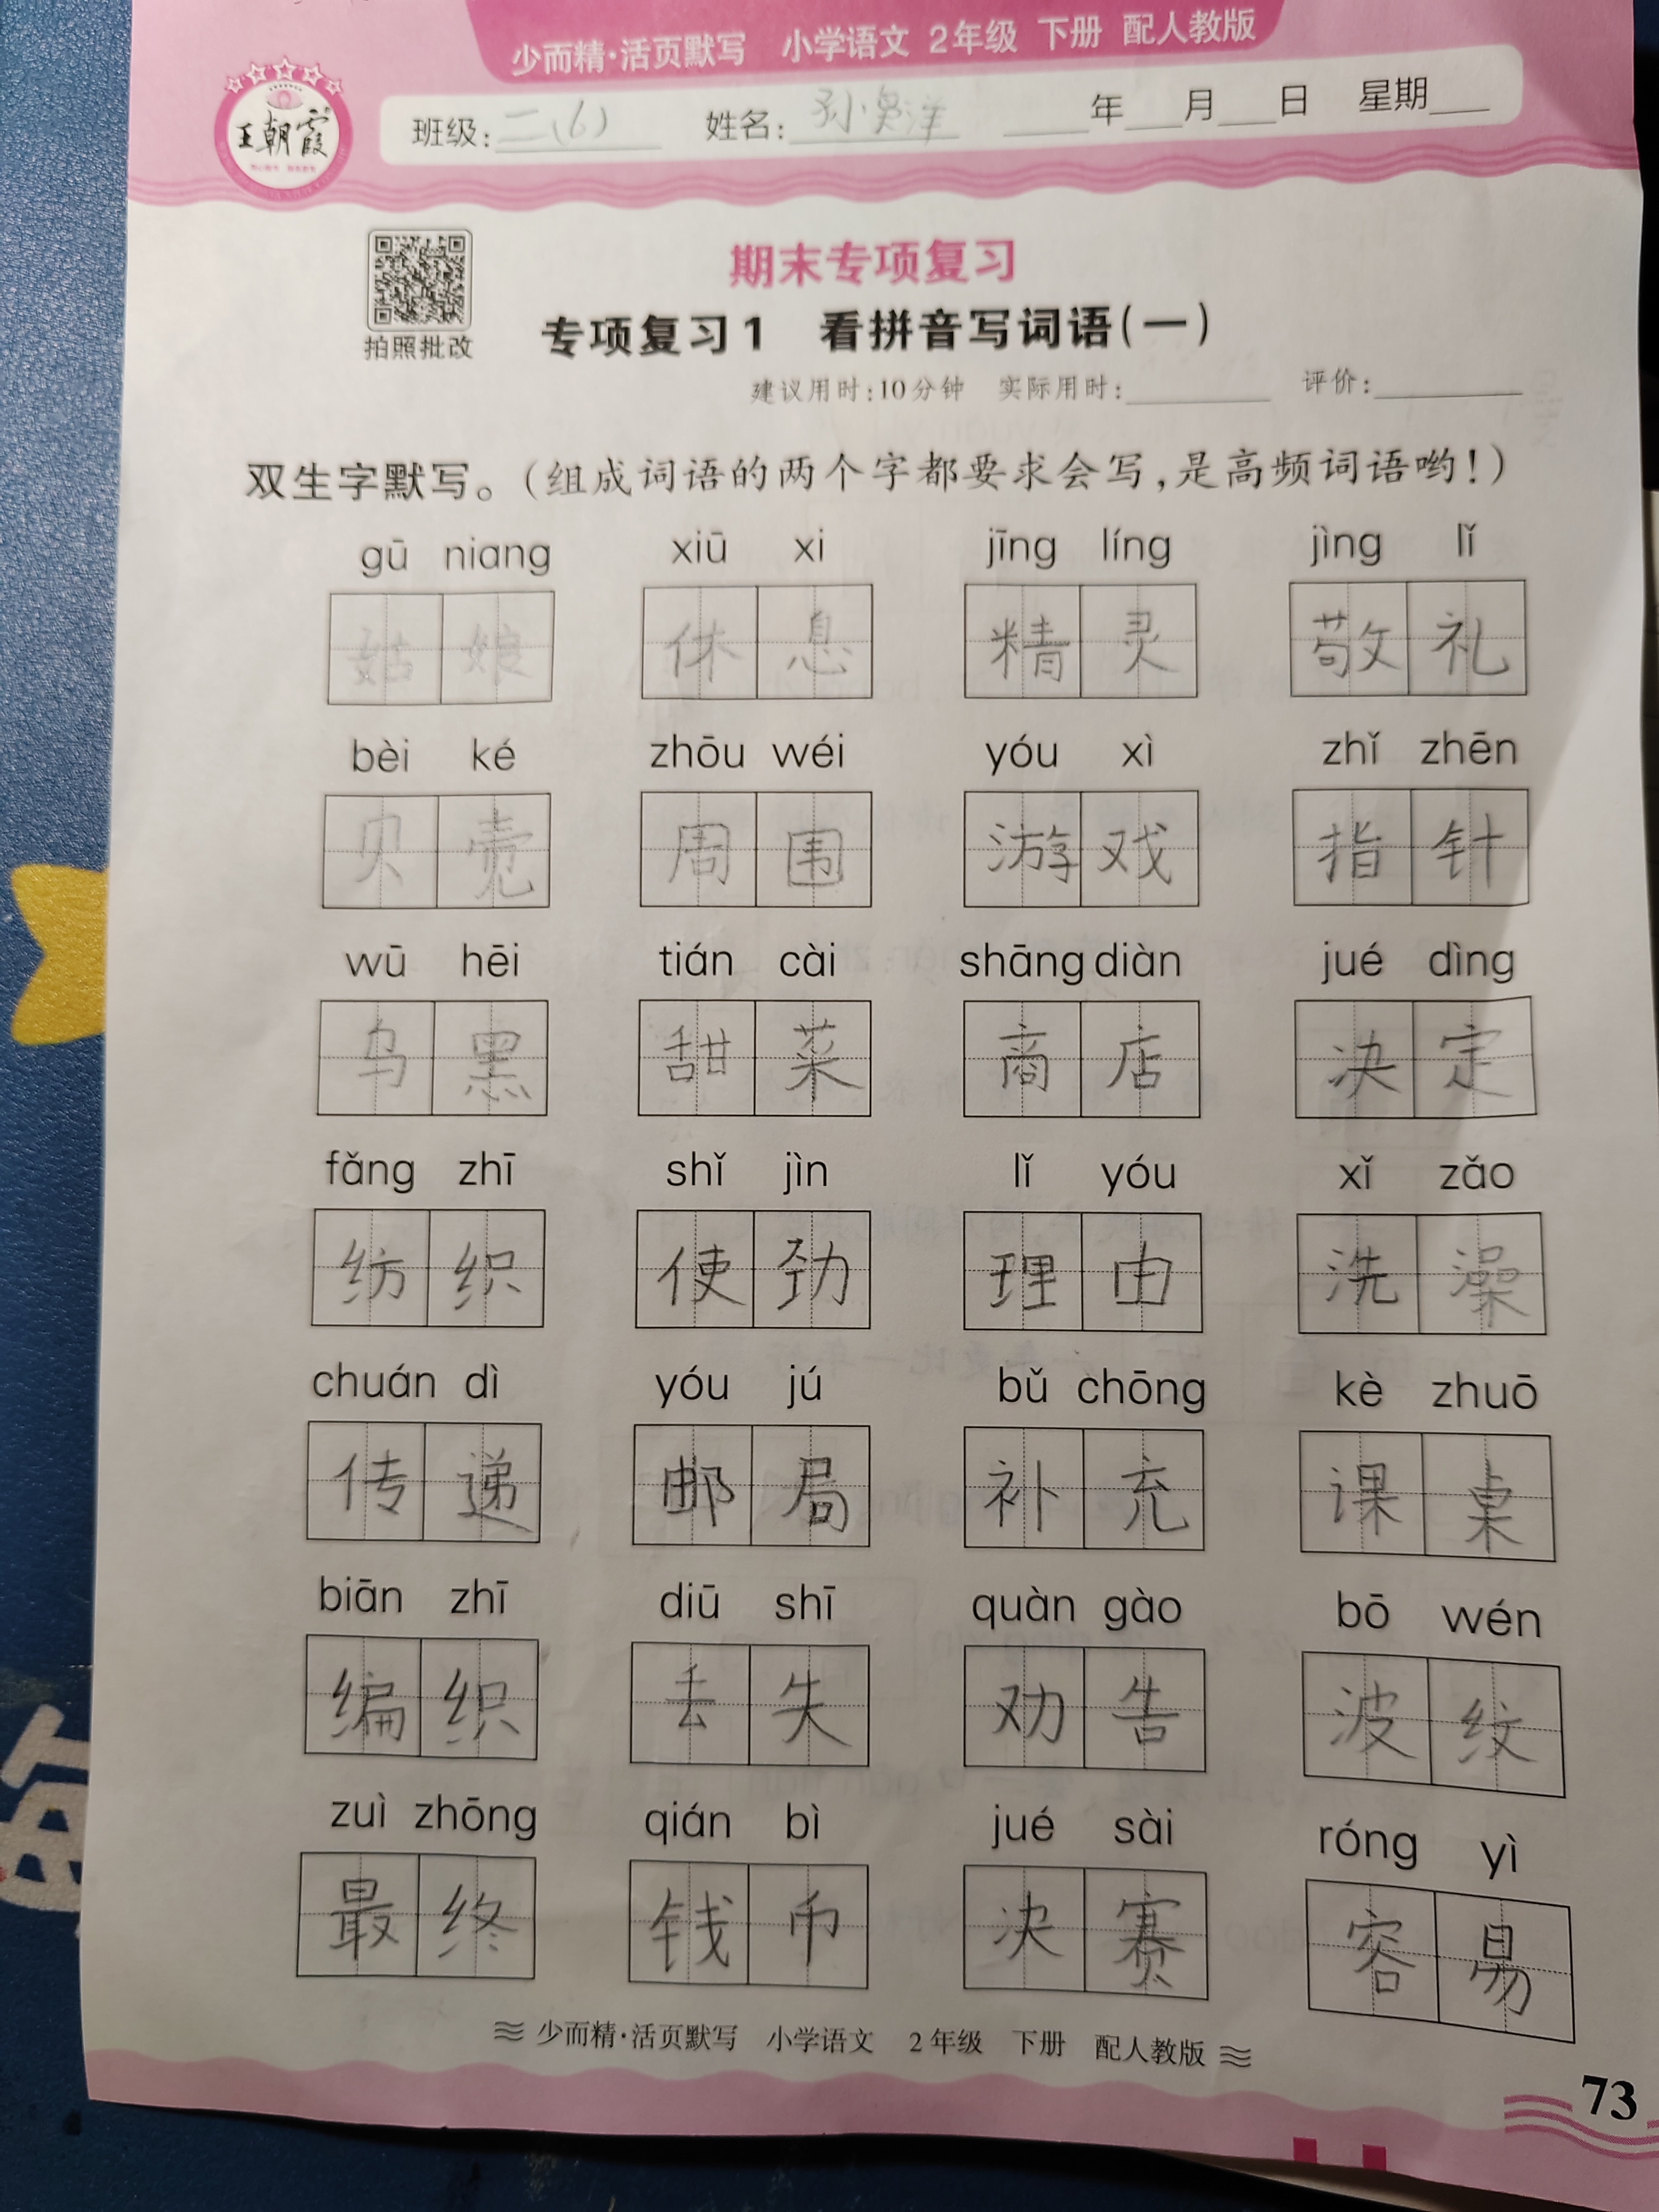 少而精·活页默写 小学语文 2年级 下册 配人教版
王朝霞
班级:二(6) 姓名:孙 洋 年 月 日 星期
拍照批改
期末专项复习
专项复习1 看拼音写词语(一)
建议用时:10分钟 实际用时: 评价:
双生字默写。(组成词语的两个字都要求会写,是高频词语哟!)
gū niang xiū xi jīng líng jìng lǐ
姑娘 休息 精灵 敬礼
bèi ké zhōu wéi yóu xì zhǐ zhēn
贝壳 周围 游戏 指针
wū hēi tián cài shāng diàn jué dìng
乌黑 甜菜 商店 决定
fǎng zhī shǐ jìn lǐ yóu xǐ zǎo
纺织 使劲 理由 洗澡
chuán dì yóu jú bǔ chōng kè zhuō
传递 邮局 补充 课桌
biān zhī diū shī quàn gào bō wén
编织 丢失 劝告 波纹
zuì zhōng qián bì jué sài róng yì
最终 钱币 决赛 容易
少而精·活页默写 小学语文 2年级 下册 配人教版
73